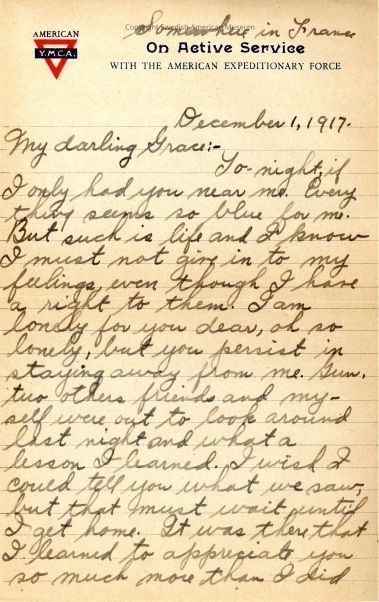 Copyright Swedish American Museum
Somewhere in France
AMERICAN
Y.M.C.A.
On Active Service
WITH THE AMERICAN EXPEDITIONARY FORCE
December 1, 1917.
My darling Grace:-
To-night, if
I only had you near me. Every
thing seems so blue for me.
But such is life and I know
I must not give in to my
feelings, even though I have
a right to them. I am
lonely for you dear, oh so
lonely, but you persist in
staying away from me. Gun,
two others friends and my-
self were out to look around
last night and what a
lesson I learned. I wish I
could tell you what we saw,
but that must wait until
I get home. It was there that
I learned to appreciate you
so much more than I did